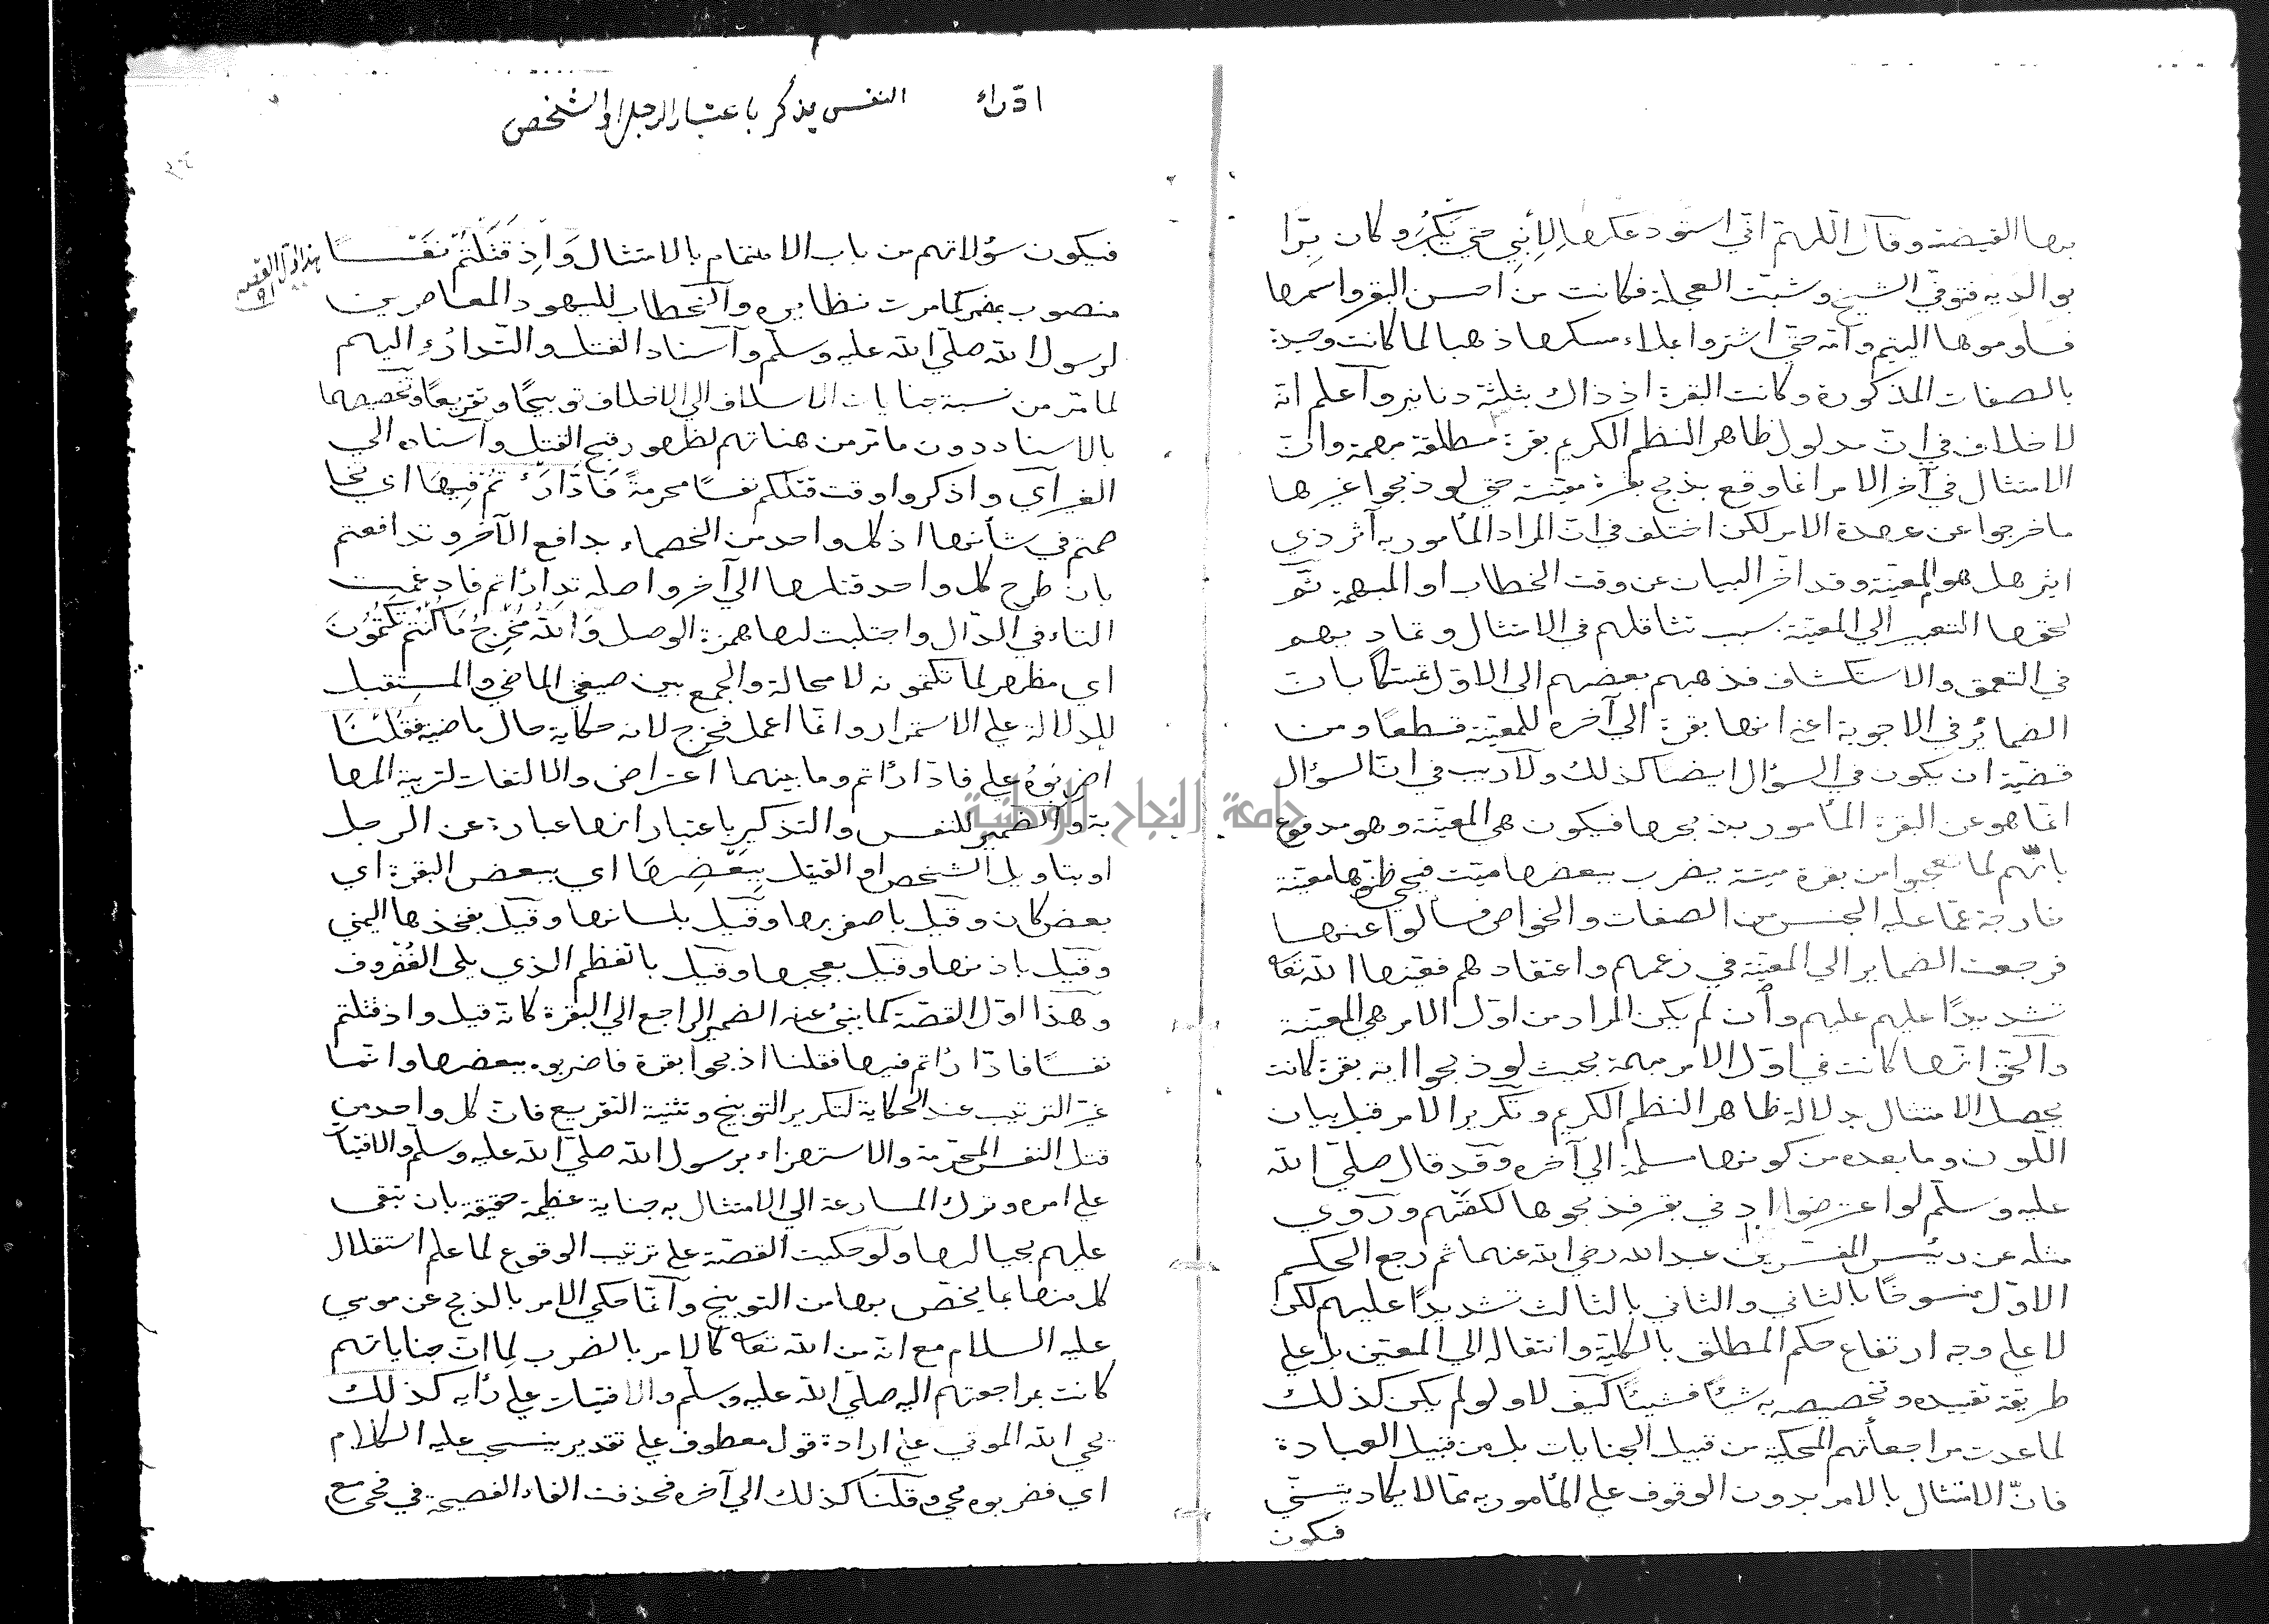 بها الغيضة وقال اللهم اني استودعكها لأبني حتى يكبر وكان برّا
بوالديه فتوفي الشيخ وشبت العجلة فكانت من احسن البقر واسمنها
فساوموها اليتيم وامه حتى اشتروا بملاء مسكها ذهبا لما كانت وحيدة
بالصفات المذكورة وكانت البقرة اذ ذاك بثلثة دنانير وآعلم انه
لا خلاف في ان مدلول ظاهر النظم الكريم بقرة مطلقة مبهمة وان
الامتثال في آخر الامر انما وقع بذبح بقرة معينة حتى لو ذبحوا غيرها
ما خرجوا عن عهدة الامر لكن اختلف في ان المراد المأمور به آثر ذي
اثير هل هو المعينة وقد اخّر البيان عن وقت الخطاب او المبهمة ثم
لحقها التغيير الى المعينة بسبب تثاقلهم في الامتثال وتماديهم
في التعمق والاستكشاف فذهب بعضهم الى الاول تمسّكا بان
الضمائر في الاجوبة اعني انها بقرة الى آخره للمعينة قطعًا ومن
قضيّة ان يكون في السؤال ايضا كذلك ولاريب في ان السؤال
انما هو عن البقرة المأمور بذبحها فيكون هي المعينة وهو مدفوع
بانّهم لما تعجبوا من بقرة ميتة يضرب ببعضها ميت فيحيى ظنوها معينة
خارجة عما عليه الجنس من الصفات والخواص فسألوا عنها
فرجعت الضماير الى المعينة في زعمهم واعتقادهم فعينها الله تعه
تشديدًا عليهم وأن لم يكن المراد من اول الامر هي المعينة
وآلحق انها كانت في اول الامر مبهمة بحيث لو ذبحوا اية بقرة كانت
يحصل الامتثال بدلالة ظاهر النظم الكريم وتكرير الامر قبل بيان
اللون وما بعده من كونها مسلمة الى آخره وقد قال صلى الله
عليه وسلم لو اعترضوا ادنى بقر فذبحوها لكفتهم وروي
مثله عن رئيس المفسرين عبدالله رضي الله عنهما ثم رجع الحكم
الاول منسوخًا بالثاني والثاني بالثالث تشديدًا عليهم لكن
لا على وجه ارتفاع حكم المطلق بالكلية وانتقاله الى المعين بل على
طريقة تقييده وتخصيصه به شيئًا فشيئًا كيف لا ولو لم يكن كذلك
لما عدت مراجعاتهم المحكية من قبيل الجنايات بل من قبيل العبادة
فانّ الامتثال بالامر بدون الوقوف على المأمور به مما لا يكاد يتسنّى
فيكون
ادّراء النفس يذكر باعتبار الرجل او الشخص
فيكون سؤلاتهم من باب الاهتمام بالامتثال وَاِذ قَتَلتُم نَفسًا
هذا اول القصه
منصوب بمضمر كما مرت نظايره والخطاب لليهود المعاصرين
لرسول الله صلى الله عليه وسلم وآسناد القتل والتدارُء اليهم
لما مرّ من نسبة جنايات الاسلاف الى الاخلاف توبيخًا وتقريعًا وتخصيصهما
بالاسناد دون ما مرّ من هناتهم لظهور قبح القتل وآسناده الى
الغير آي واذكروا وقت قتلكم نفسًا محرمةً فَادَّارَءتُم فِيهَا اي تخا
صمتم في شأنها اذ كل واحد من الخصماء يدافع الآخر وتدافعتم
بان طرح كل واحد قتلها الى آخر واصله تدارُاتم فادغمت
التاء في الدال واجتلبت لها همزة الوصل وَاللهُ مُخرِجٌ مَاكُنتُم تَكتُمُونَ
اي مظهر لما تكتمونه لا محالة والجمع بين صيغتي الماضي والمستقبل
للدلالة على الاستمرار وانما اعمل مخرج لانه حكاية حال ماضية فَقُلنَا
اضرِبُوهُ على فادّارُاتم وما بينهما اعتراض والالتفات لتربية المها
بة والضمير للنفس والتذكير باعتبار انها عبارة عن الرجل
او بتاويل الشخص او القتيل بِبَعضِهَا اي ببعض البقرة اي
بعض كان وقيل باصغريها وقيل بلسانها وقيل بفخذها اليمنى
وقيل باذنها وقيل بعجبها وقيل بالعظم الذي يلى الغُضروف
وهذا اول القصّة كما ينبئ عنه الضمير الراجع الى البقرة كانه قيل واذ قتلتم
نفسًا فادّارُاتم فيها فقلنا اذبحوا بقرة فاضربوه ببعضها وانما
غيّر الترتيب عند الحكاية لتكرير التوبيخ وتثنية التقريع فان كل واحد من
قتل النفس المحرمة والاستهزاء برسول الله صلى الله عليه وسلم والافتيات
على امره وترك المسارعة الى الامتثال به جناية عظيمة حقيقة بان تبقى
عليهم بحيالها ولو حكيت القصّة على ترتيب الوقوع لما علم استقلال
كل منها بما يخصّ بها من التوبيخ وآنما حكي الامر بالذبح عن موسى
عليه السلام مع انه من الله تعه كالامر بالضرب لِما ان جناياتهم
كانت بمراجعتهم اليه صلى الله عليه وسلم والافتيات على رأيه كذلك
يحي الله الموتى على ارادة قول معطوف على تقدير ينسحب عليه الكلام
اي فضربوه فحي وقلنا كذلك الى آخره فحذفت الفاء الفصيحة في فحى مع
جامعة النجاح الوطنية